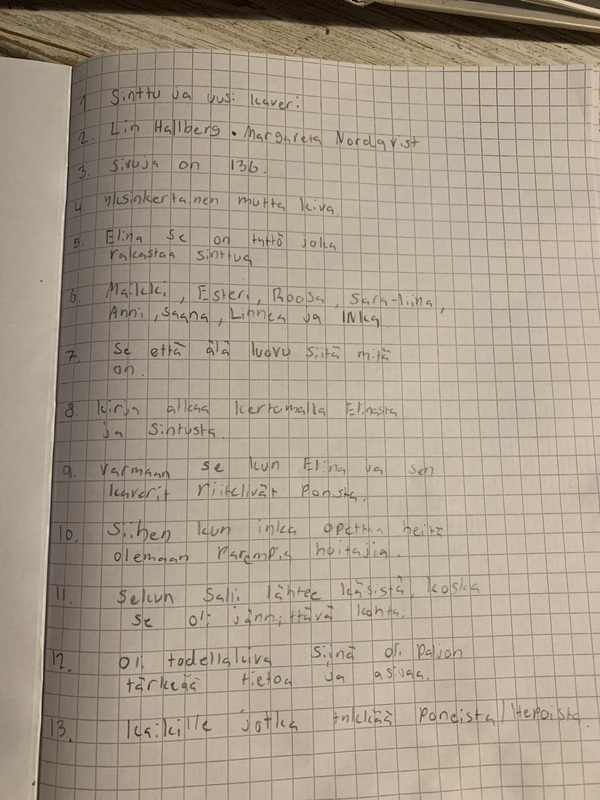 1. Sinttu ja uusi kaveri
2. Lin Hallberg • Margareta Nordqvist
3. Sivuja on 136.
4. yksinkertainen mutta kiva.
5. Elina se on tyttö joka
rakastaa sinttua
6. Maikki, Esteri, Roosa, Sara-Liina,
Anni, Sagna, Linnea ja INka
7. Se että älä luovu siitä mitä
on.
8. kirja alkaa kertomalla Elinasta
ja Sintusta.
9. varmaan se kun Elina ja sen
kaverit riitelivät Ponista.
10. Siihen kun inka opettaa heitä
olemaan parempia hoitajia.
11. Sekun Salli lähtee käsistä, koska
se oli jännittävä kohta.
12. Oli todellakiva Siinä oli paljon
tärkeää tietoa ja asiyaa.
13. kaikille jotka tykkää Poneista/Heposita.